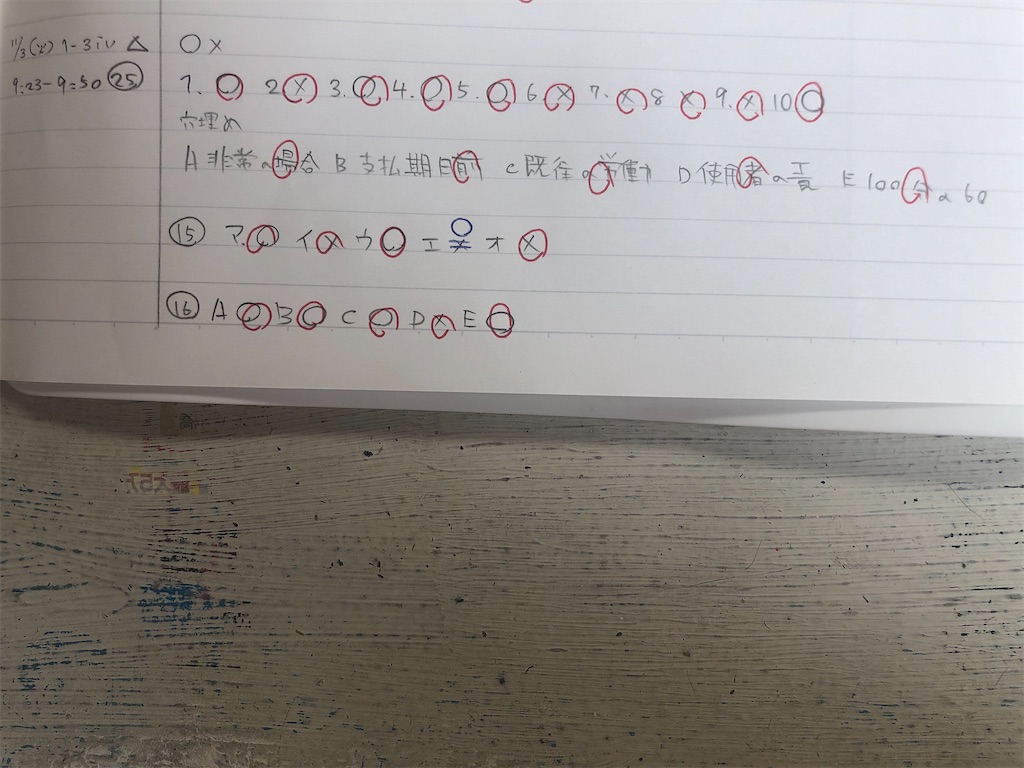 11/3(土) 1-3 iv △ ○×
9:23-9:50 ㉕ 1. ○ 2 × 3. ○ 4. ○ 5. ○ 6 × 7. × 8 × 9. × 10 ○
穴埋め
A 非常の場合 B 支払期日前 C 既往の労働 D 使用者の責 E 100分の60
⑮ ア. ○ イ × ウ ○ エ × ○ オ ×
⑯ A ○ B ○ C ○ D × E ○